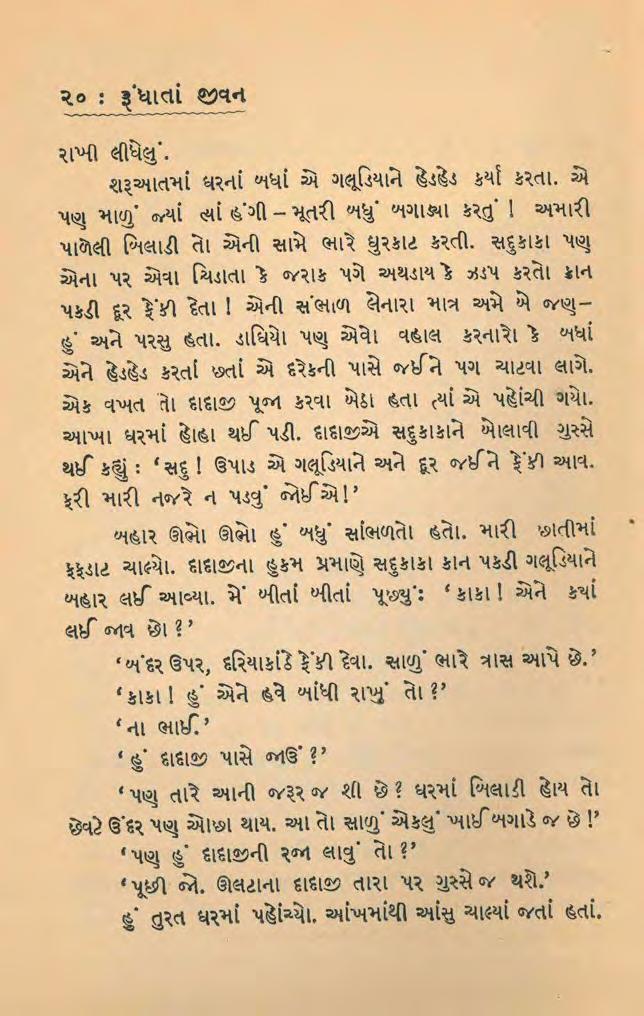 ૨૦ : રૂંધાતાં જીવન
રાખી લીધેલું.
શરૂઆતમાં ઘરનાં બધાં એ ગલૂડિયાને હેડહેડ કર્યા કરતા. એ
પણ માળું જ્યાં ત્યાં હંગી – મૂતરી બધું બગાડ્યા કરતું ! અમારી
પાળેલી બિલાડી તો એની સામે ભારે ઘુરકાટ કરતી. સદુકાકા પણ
એના પર એવા ચિડાતા કે જરાક પગે અથડાય કે ઝડપ કરતો કાન
પકડી દૂર ફેંકી દેતા ! એની સંભાળ લેનારા માત્ર અમે બે જણ–
હું અને પરસુ હતા. ડાઘિયો પણ એવો વહાલ કરનારો કે બધાં
એને હેડહેડ કરતાં છતાં એ દરેકની પાસે જઈને પગ ચાટવા લાગે.
એક વખત તો દાદાજી પૂજા કરવા બેઠા હતા ત્યાં એ પહોંચી ગયો.
આખા ઘરમાં હોહા થઈ પડી. દાદાજીએ સદુકાકાને બોલાવી ગુસ્સે
થઈ કહ્યું : ‘સદુ ! ઉપાડ એ ગલૂડિયાને અને દૂર જઈને ફેંકી આવ.
ફરી મારી નજરે ન પડવું જોઈએ!’
બહાર ઊભો ઊભો હું બધું સાંભળતો હતો. મારી છાતીમાં
ફફડાટ ચાલ્યો. દાદાજીના હુકમ પ્રમાણે સદુકાકા કાન પકડી ગલૂડિયાને
બહાર લઈ આવ્યા. મેં બીતાં બીતાં પૂછ્યું: ‘કાકા ! એને કયાં
લઈ જાવ છો ?’
‘બંદર ઉપર, દરિયાકાંઠે ફેંકી દેવા. સાળું ભારે ત્રાસ આપે છે.’
‘કાકા ! હું એને હવે બાંધી રાખું તો ?’
‘ના ભાઈ.’
‘હું દાદાજી પાસે જાઉં ?’
‘પણ તારે આની જરૂર જ શી છે ? ઘરમાં બિલાડી હોય તો
છેવટે ઉંદર પણ ઓછા થાય. આ તો સાળું એકલું ખાઈ બગાડે જ છે !’
‘પણ હું દાદાજીની રજા લાવું તો ?’
‘પૂછી જો. ઊલટાના દાદાજી તારા પર ગુસ્સે જ થશે.’
હું તુરત ઘરમાં પહોંચ્યો. આંખમાંથી આંસુ ચાલ્યાં જતાં હતાં.